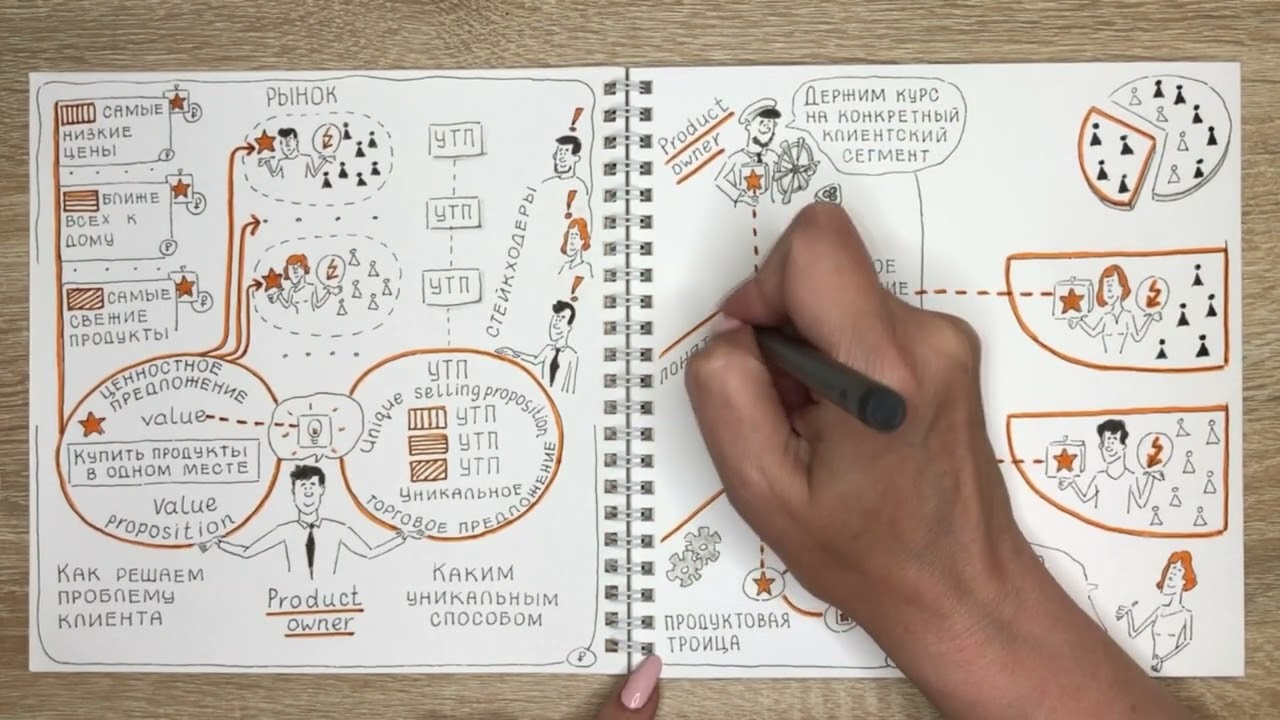 САМЫЕ
НИЗКИЕ
ЦЕНЫ
₽
₽
БЛИЖЕ
ВСЕХ К
ДОМУ
₽
₽
САМЫЕ
СВЕЖИЕ
ПРОДУКТЫ
₽
РЫНОК
УТП
УТП
УТП
СТЕЙКХОДЕРЫ
ЦЕННОСТНОЕ
ПРЕДЛОЖЕНИЕ
value
КУПИТЬ ПРОДУКТЫ
В ОДНОМ МЕСТЕ
value
proposition
УТП
Unique selling proposition
УТП
УТП
УТП
УНИКАЛЬНОЕ
ТОРГОВОЕ ПРЕДЛОЖЕНИЕ
КАК РЕШАЕМ
ПРОБЛЕМУ
КЛИЕНТА
Product
owner
КАКИМ
УНИКАЛЬНЫМ
СПОСОБОМ
₽
Product
owner
ДЕРЖИМ КУРС
НА КОНКРЕТНЫЙ
КЛИЕНТСКИЙ
СЕГМЕНТ
ПРОДУКТОВАЯ
ТРОИЦА